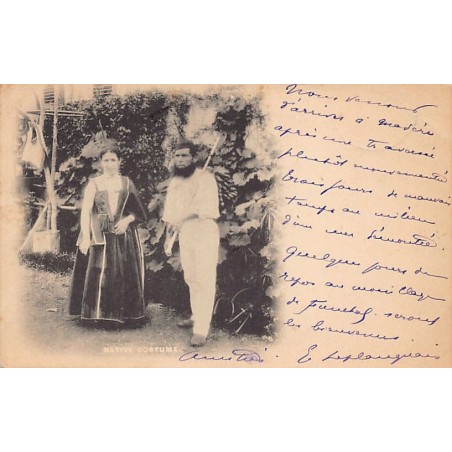 Nous venons
d'arriver à Madère
après une traversée
plutôt mouvementée
trois jours de mauvais
temps au milieu
d'un mer démontée.
Quelques jours de
repos au moi
de Funchal seront
les bienvenus.
Amitiés. E
NATIVE COSTUME